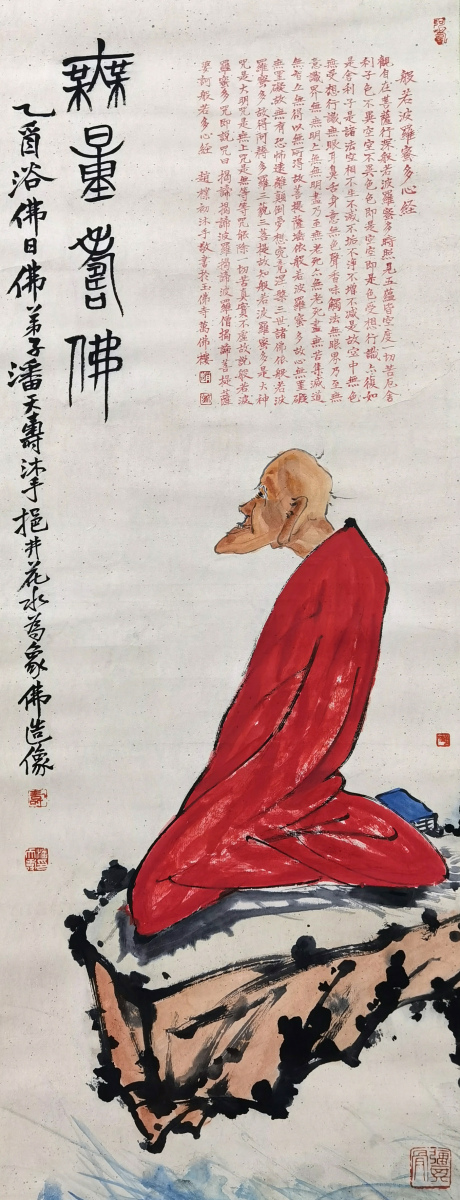 般若波羅蜜多心經
觀自在菩薩行深般若波羅蜜多時照見五蘊皆空度一切苦厄舍
利子色不異空空不異色色即是空空即是色受想行識亦復如
是舍利子是諸法空相不生不滅不垢不淨不增不減是故空中無色
無受想行識無眼耳鼻舌身意無色聲香味觸法無眼界乃至無
意識界無無明亦無無明盡乃至無老死亦無老死盡無苦集滅道
無智亦無得以無所得故菩提薩埵依般若波羅蜜多故心無罣礙
無罣礙故無有恐怖遠離顛倒夢想究竟涅槃三世諸佛依般若波
羅蜜多故得阿耨多羅三藐三菩提故知般若波羅蜜多是大神
咒是大明咒是無上咒是無等等咒能除一切苦真實不虛故說般若波
羅蜜多咒即說咒曰揭諦揭諦波羅揭諦波羅僧揭諦菩提薩
婆訶般若多心經 趙樸初沐手敬書於玉佛寺萬佛樓
無量壽佛
乙酉浴佛日佛弟子潘天壽沐手挹井花水為象佛造像
壽
彊其骨